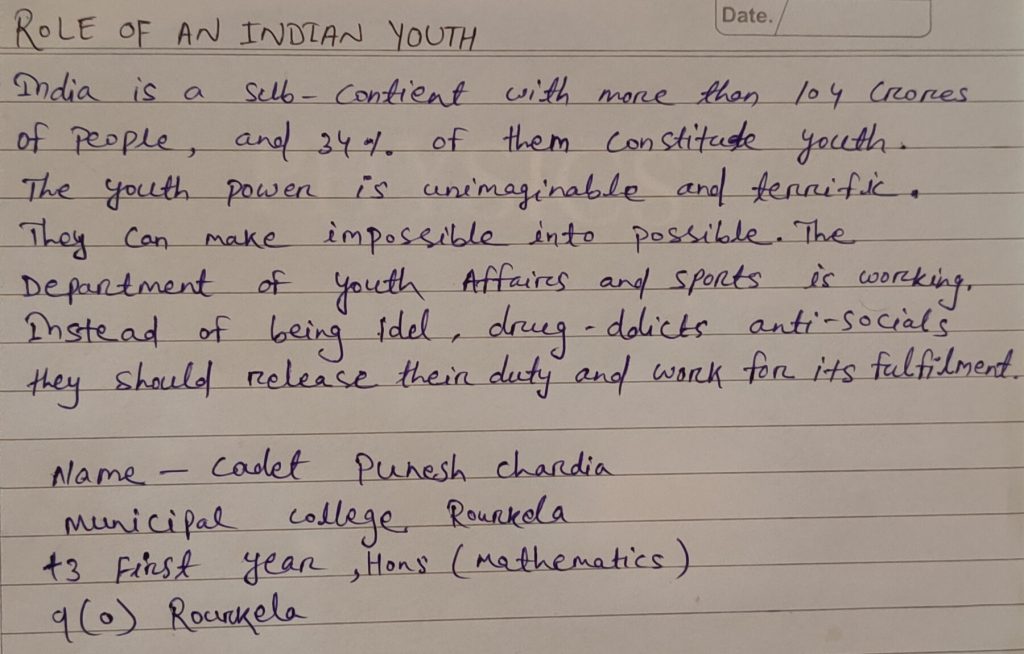 Date.
ROLE OF AN INDIAN YOUTH
India is a sub-contient with more than 104 crores
of people, and 34%. of them constitute youth.
The youth power is unimaginable and terrific.
They can make impossible into possible. The
Department of youth Affairs and sports is working.
Instead of being idel, drug-ddicts anti-socials
they should release their duty and work for its fulfilment.
Name - Cadet Punesh chardia
municipal college, Rourkela
+3 First year, Hons (mathematics)
9(o) Rourkela